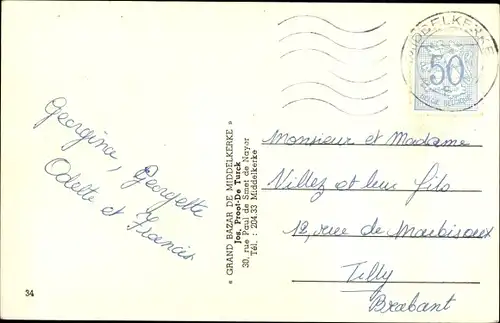 MIDDELKERKE
50
BELGIE BELGIQUE
Georgina, Georgette
Odette et Francis
« GRAND BAZAR DE MIDDELKERKE »
Jos. Proot-De Turck
30, rue Paul de Smet de Nayer
Tél. : 204.33 Middelkerke
Monsieur et Madame
Villez et leur fils
12, rue de Marbisoux
Tilly
Brabant
34